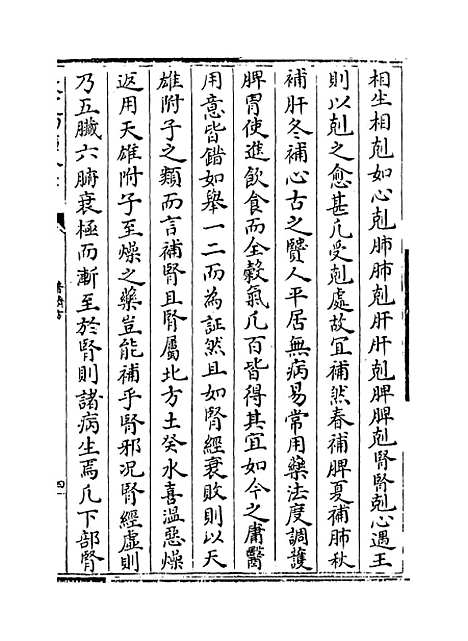 相生相剋如心剋肺肺剋肝肝剋脾脾剋腎腎剋心遇王
則以剋之愈甚凡受剋處故宜補然春補脾夏補肺秋
補肝冬補心古之賢人平居無病易常用藥法度調護
脾胃使進飲食而全穀氣凡百皆得其宜如今之庸醫
用意皆錯如舉一二而為証然且如腎經衰敗則以天
雄附子之類而言補腎且腎屬北方土癸水喜溫惡燥
返用天雄附子至燥之藥豈能補乎腎邪况腎經虛則
乃五臟六腑衰極而漸至於腎則諸病生焉凡下部腎
普濟方
四